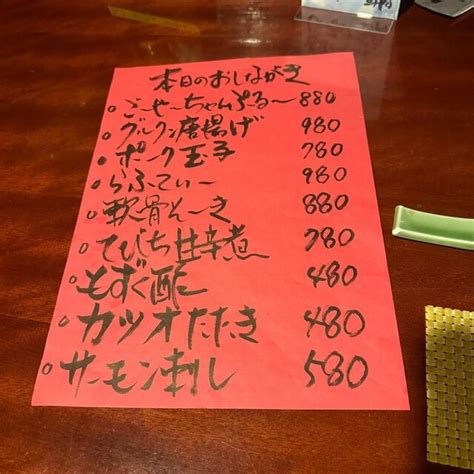 本日のおしながき
ごーやーちゃんぷるー 880
グルクン唐揚げ 980
ポーク玉子 780
らふてぃー 980
軟骨そーき 880
てびち甘辛煮 780
もずく酢 480
カツオたたき 480
サーモン刺し 580